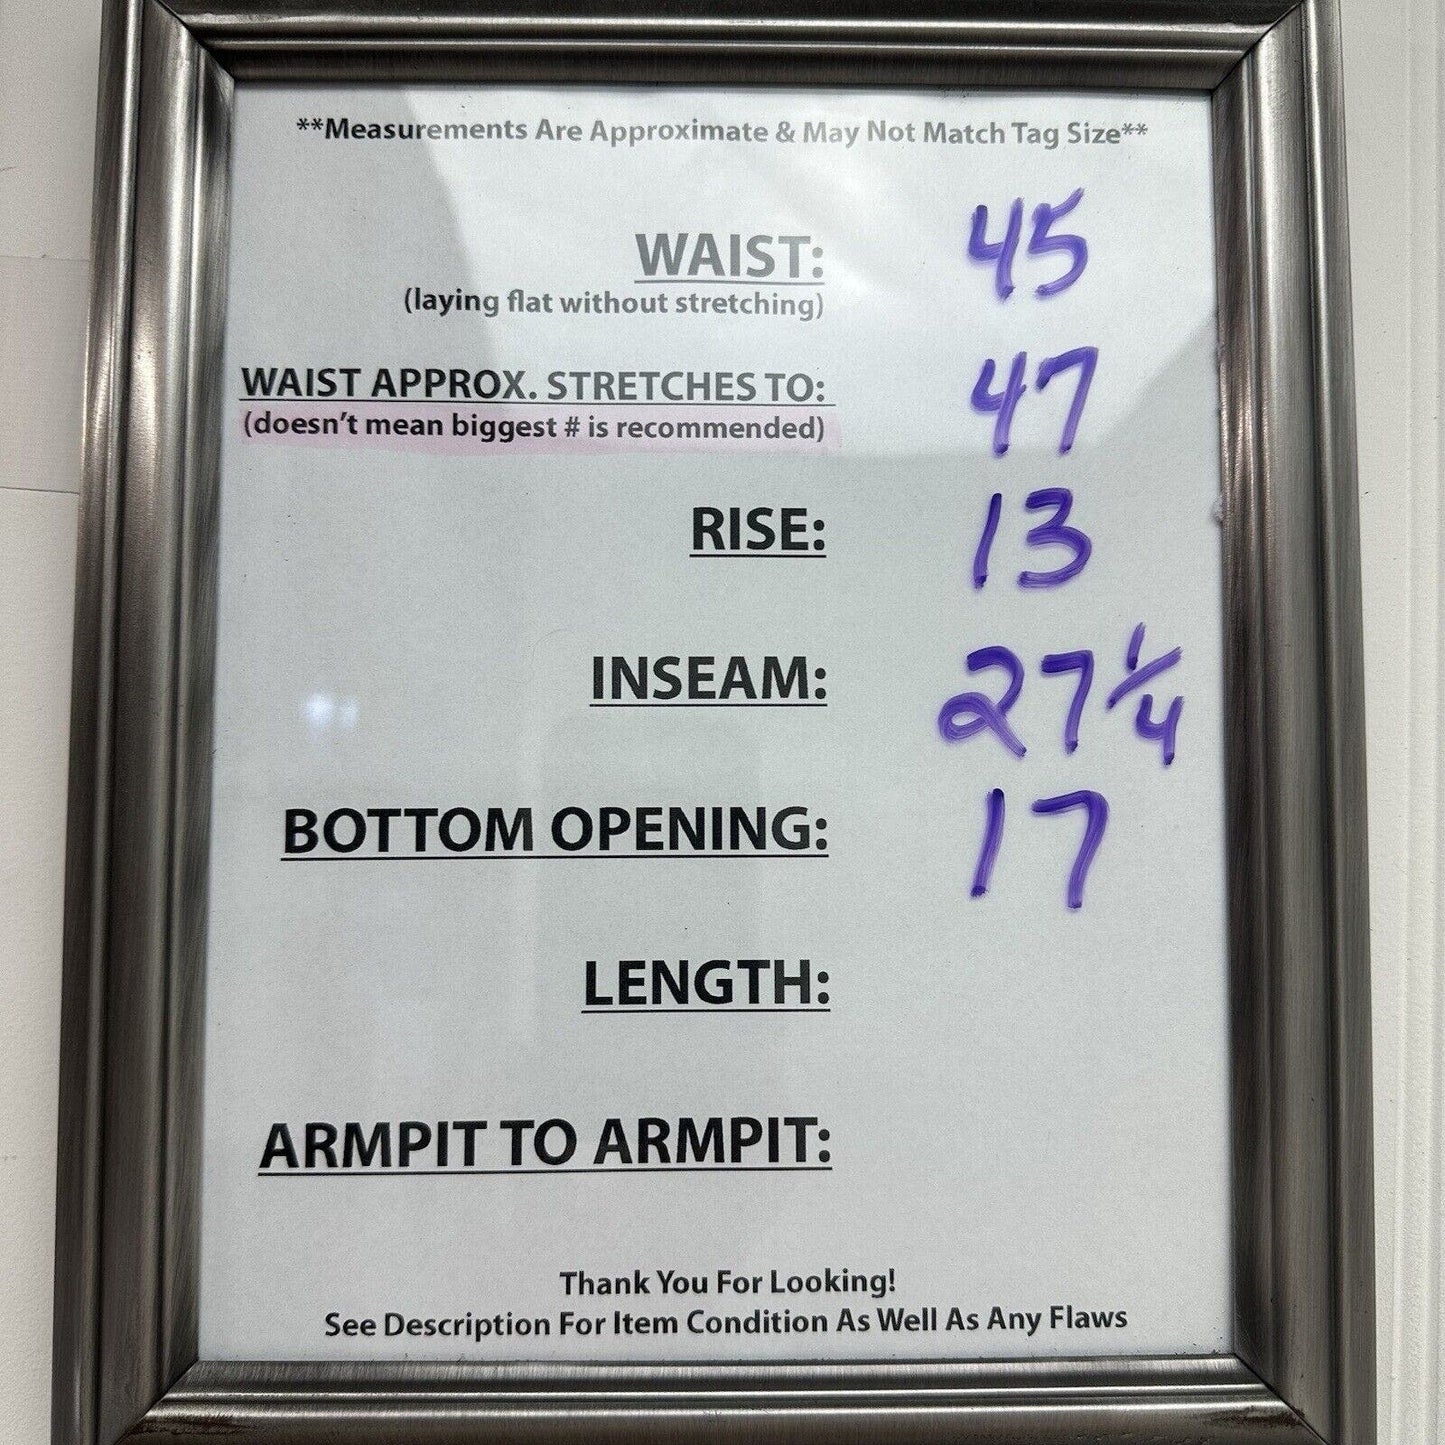 **Measurements Are Approximate & May Not Match Tag Size**
WAIST: 45
(laying flat without stretching)
WAIST APPROX. STRETCHES TO: 47
(doesn't mean biggest # is recommended)
RISE: 13
INSEAM: 27 1/4
BOTTOM OPENING: 17
LENGTH:
ARMPIT TO ARMPIT:
Thank You For Looking!
See Description For Item Condition As Well As Any Flaws